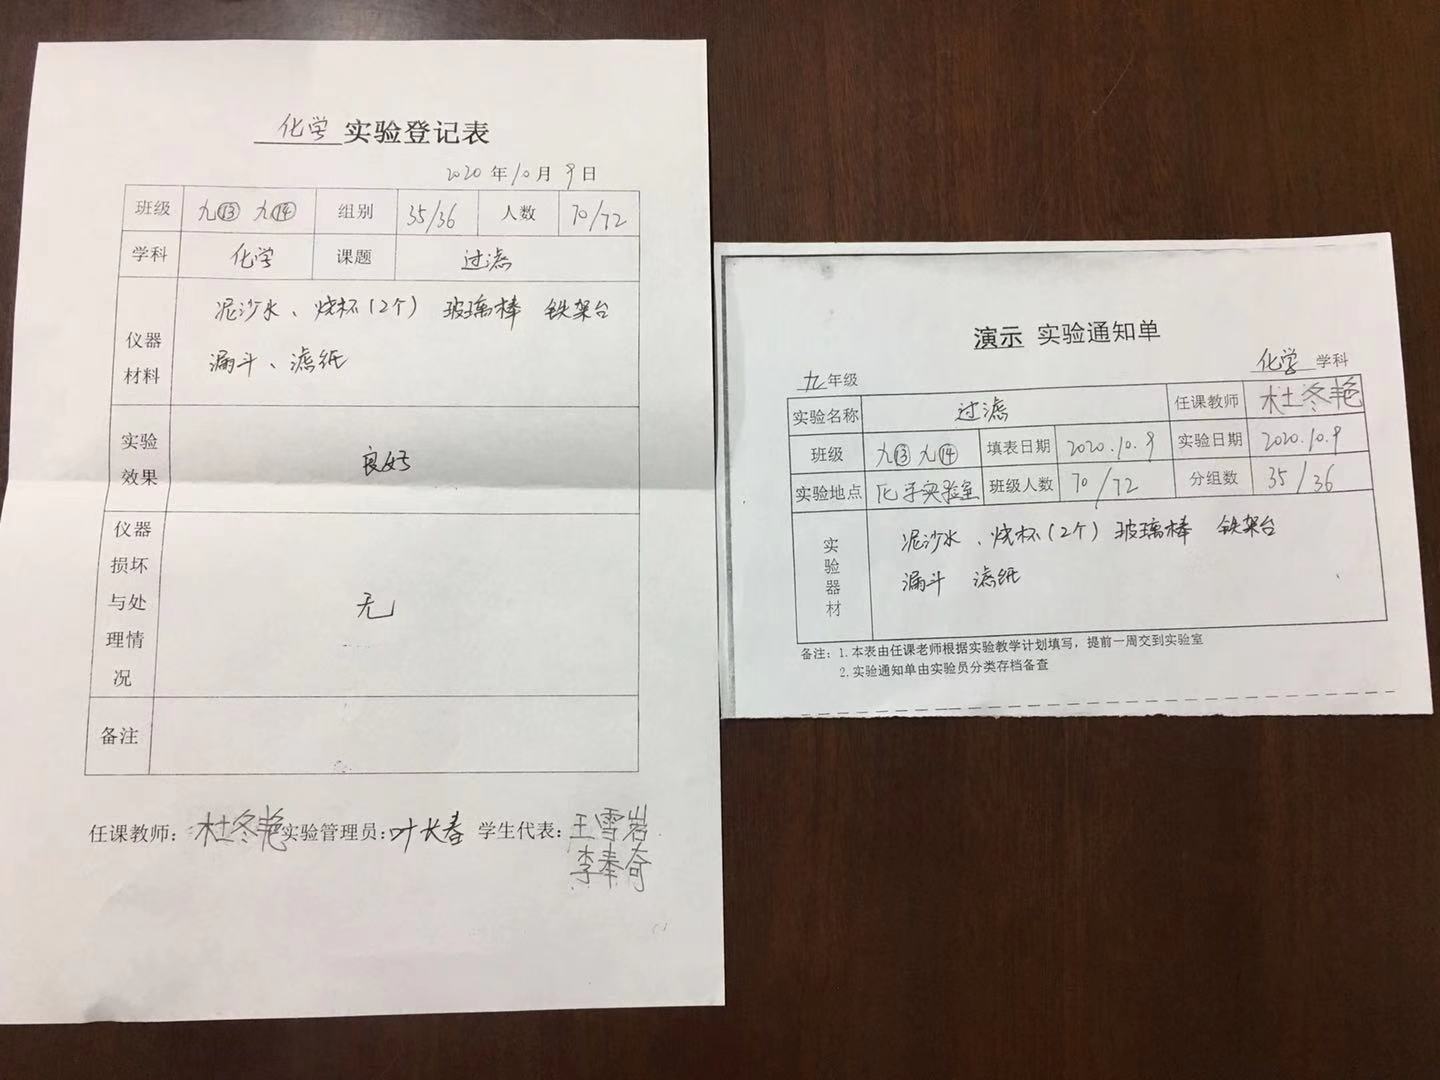 化学 实验登记表
2020 年 10 月 9 日
班级 九⑬ 九⑭ 组别 35/36 人数 70/72
学科 化学 课题 过滤
仪器材料 泥沙水、烧杯(2个) 玻璃棒 铁架台
漏斗、滤纸
实验效果 良好
仪器损坏与处理情况 无
备注
任课教师: 杜冬艳 实验管理员: 叶长春 学生代表: 王雪岩
李奉奇
演示 实验通知单
九 年级 化学 学科
实验名称 过滤 任课教师 杜冬艳
班级 九⑬ 九⑭ 填表日期 2020.10.9 实验日期 2020.10.9
实验地点 化学实验室 班级人数 70/72 分组数 35/36
实验器材 泥沙水、烧杯(2个) 玻璃棒 铁架台
漏斗 滤纸
备注: 1.本表由任课老师根据实验教学计划填写，提前一周交到实验室
2.实验通知单由实验员分类存档备查